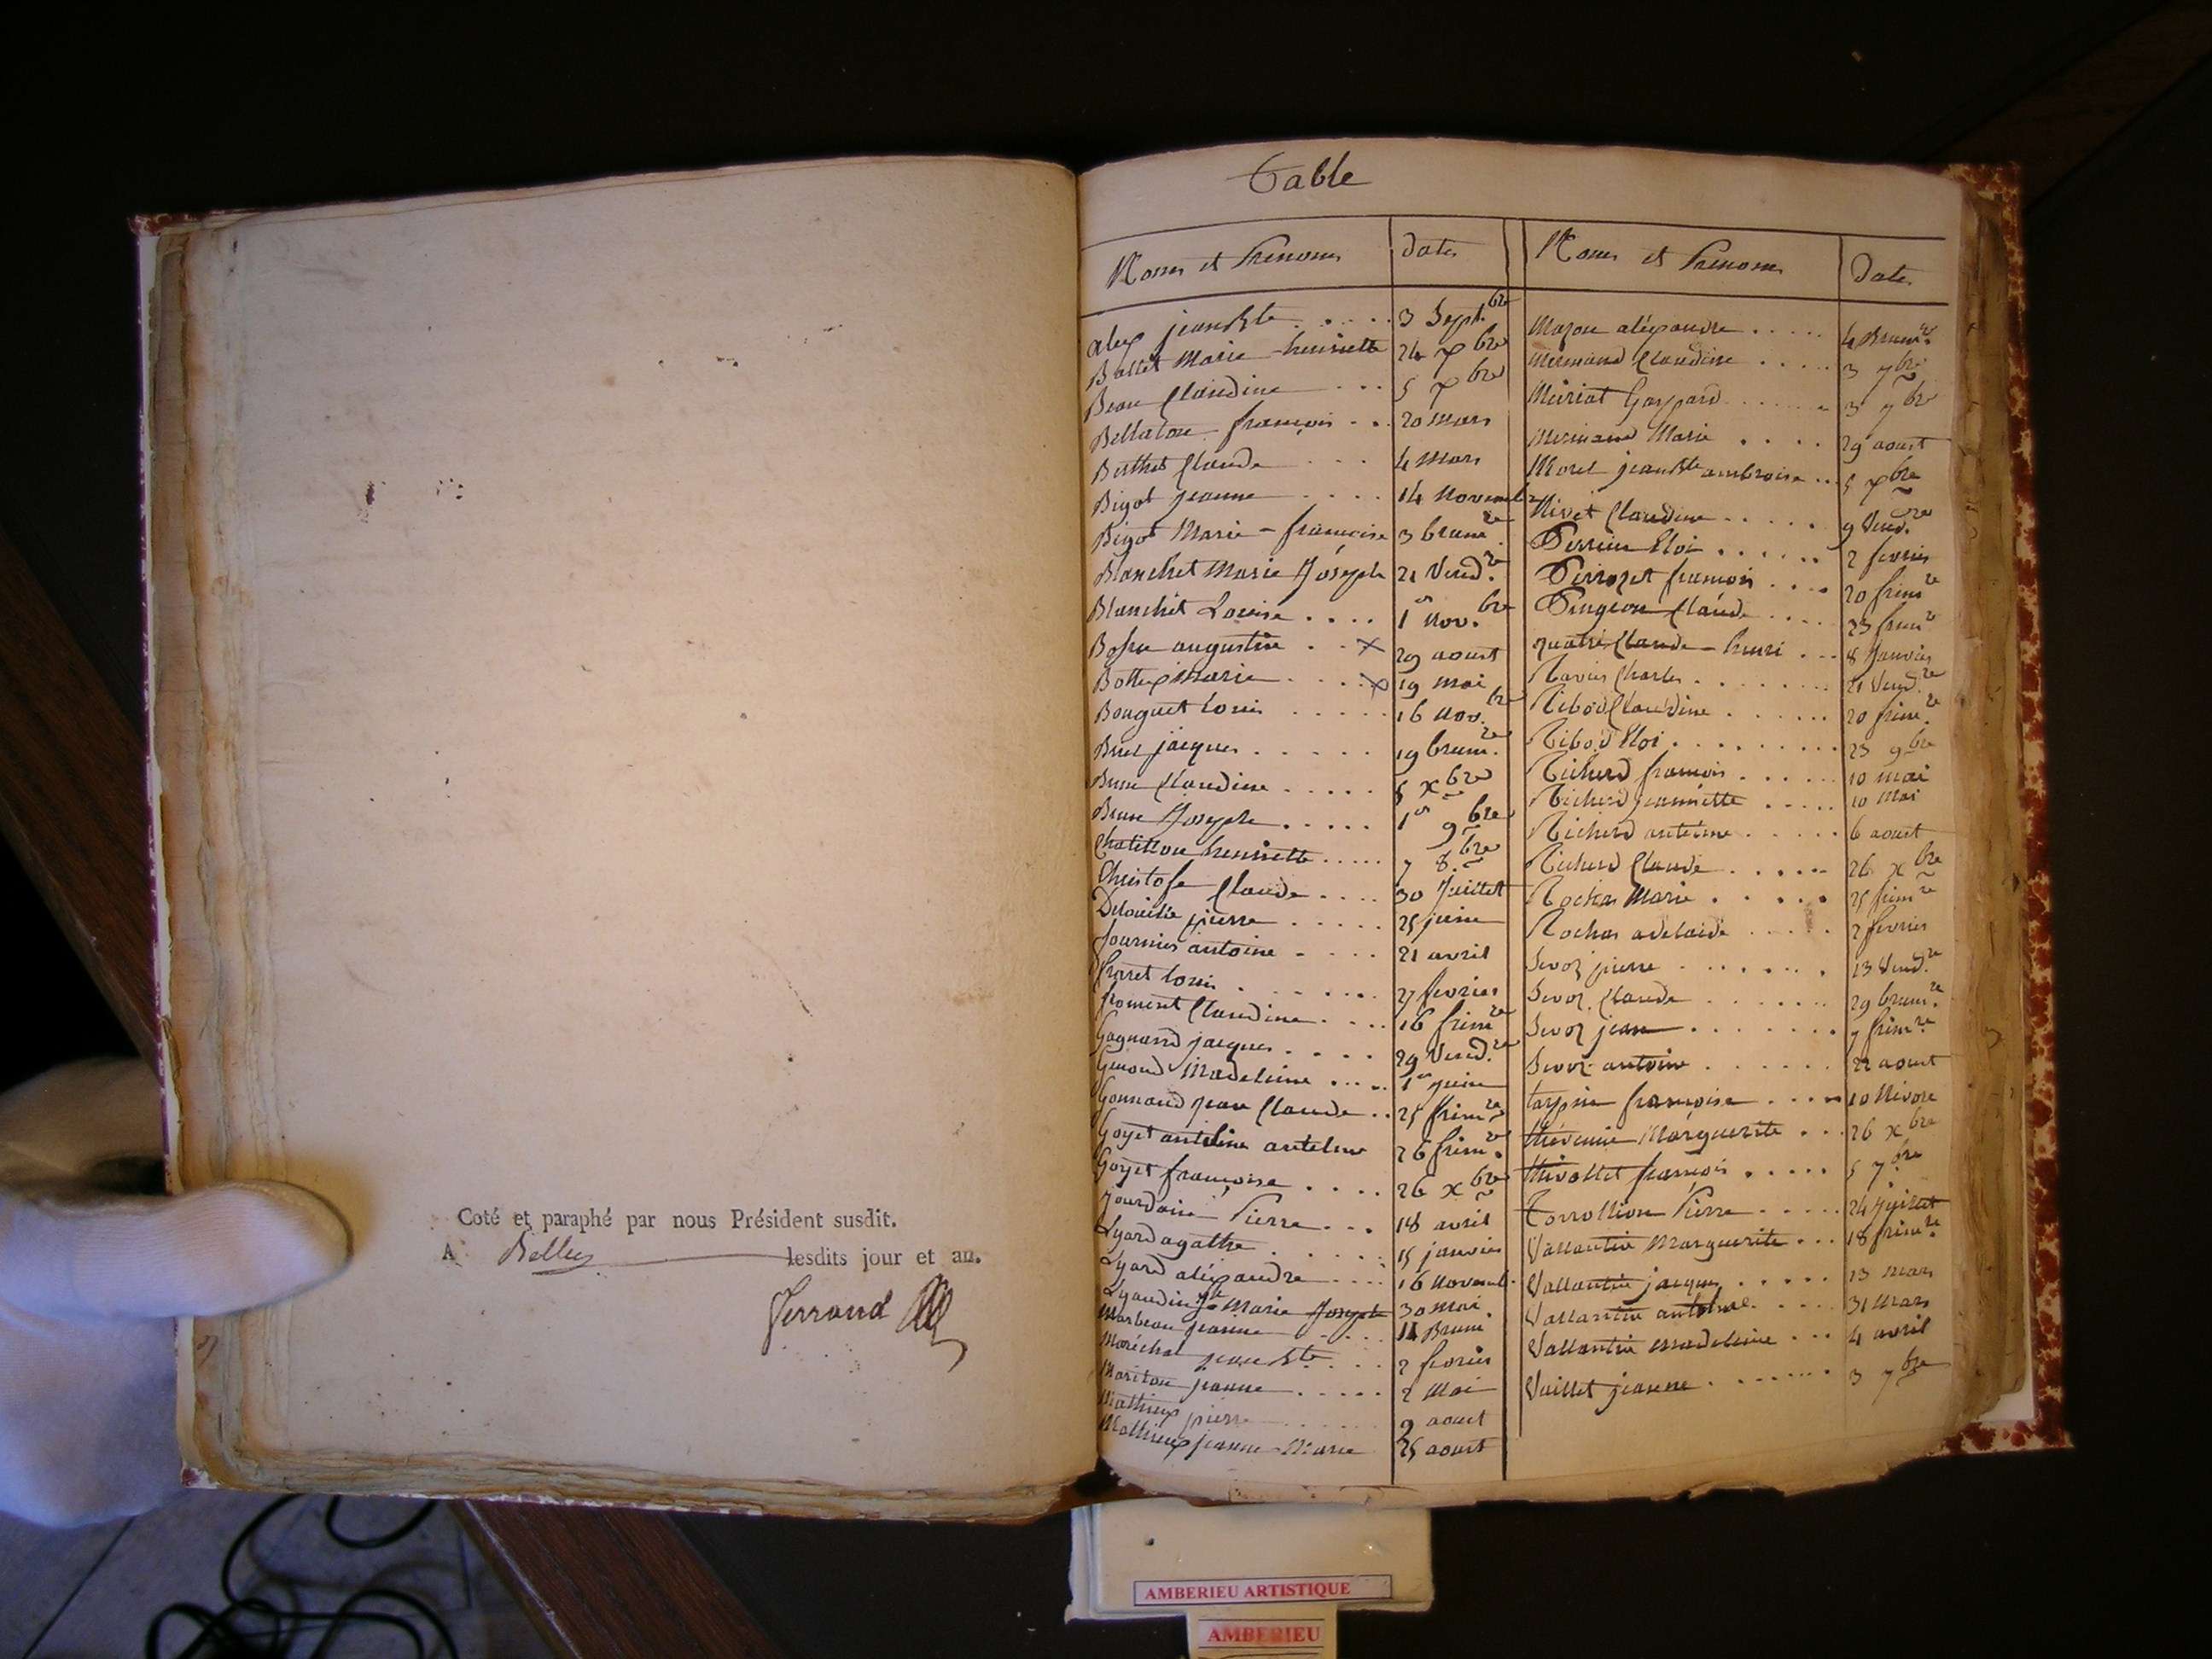 Coté et paraphé par nous Président susdit.
A Belley lesdits jour et an.
Ferrand
Table
Noms et Prenoms Dates
alex jean Bte 3 Sept.bre
Ballet Marie henriette 24 7bre
Beau Claudine 5 7bre
Bellaton françois 20 mars
Berthet Claude 4 Mars
Bigot jeanne 14 Novemb
Bigot Marie-francoise 3 brum.re
Blanchet Marie Joseph 21 Vend.re
Blanchet Louise 1er Nov.bre
augustine 29 aoust
Bottex Marie 19 mai
Bouquet Louis 16 Nov.bre
jacques 19 brum.re
Brun Claudine 5 xbre
Brun Joseph 1er 9bre
Chatillon henriette 7 8.bre
Christofe Claude 30 Juillet
pierre 25 juin
fournier antoine 21 avril
Louis 27 fevrier
froment Claudine 16 frim.re
Gagnard jacques 29 Vend.re
Genoud Madeleine 1er juin
Gonnand jean Claude 25 frim.re
Goyet antelme 26 frim.re
Goyet françoise 26 xbre
Jourdain Pierre 18 avril
Lyard agathe 15 janvier
Lyard aléxandre 16 Novemb.
Marie Joseph 30 Mai
Marbeau jeanne 11 Brum
Maréchal jean Bte 2 fevrier
Mariton jeanne 2 Mai
Mathieux pierre 9 aout
Mathieux jeanne-Marie 25 aoust
Noms et Prenoms Dates
Mazou aléxandre 4 Brum.re
Mermand Claudine 3 7bre
Muriat Gaspard 3 7bre
Mermand Marie 29 aoust
Morel jean Bte ambroise 5 7bre
Nivet Claudine 9 Vend.re
Perrier Eloi 2 fevrier
Perrozet francois 20 frim.re
Pingeon Claude 23 frim.re
quatre Claude-henri 8 Janvier
Ravier Charles 21 Vend.re
Ribod Claudine 20 frim.re
Ribod Eloi 23 9bre
Richerd francois 10 mai
Richerd jeannette 10 Mai
Richerd antelme 6 aoust
Richerd Claude 26 xbre
Rochas Marie 25 frim.re
Rochas adelaide 2 fevrier
Sevoz pierre 13 Vend.re
Sevoz Claude 29 brum.re
Sevoz jean 7 frim.re
Sevoz antoine 22 aoust
tarpin françoise 10 Nivose
thévenin Marguerite 26 xbre
thivollet francois 5 7bre
Torrollion Pierre 24 Juillet
Vallantin Marguerite 18 frim.re
Vallantin jacques 13 mars
Vallantin antelme 31 Mars
Vallantin Madeleine 4 avril
Vuillet jeanne 3 7bre
AMBERIEU ARTISTIQUE
AMBERIEU